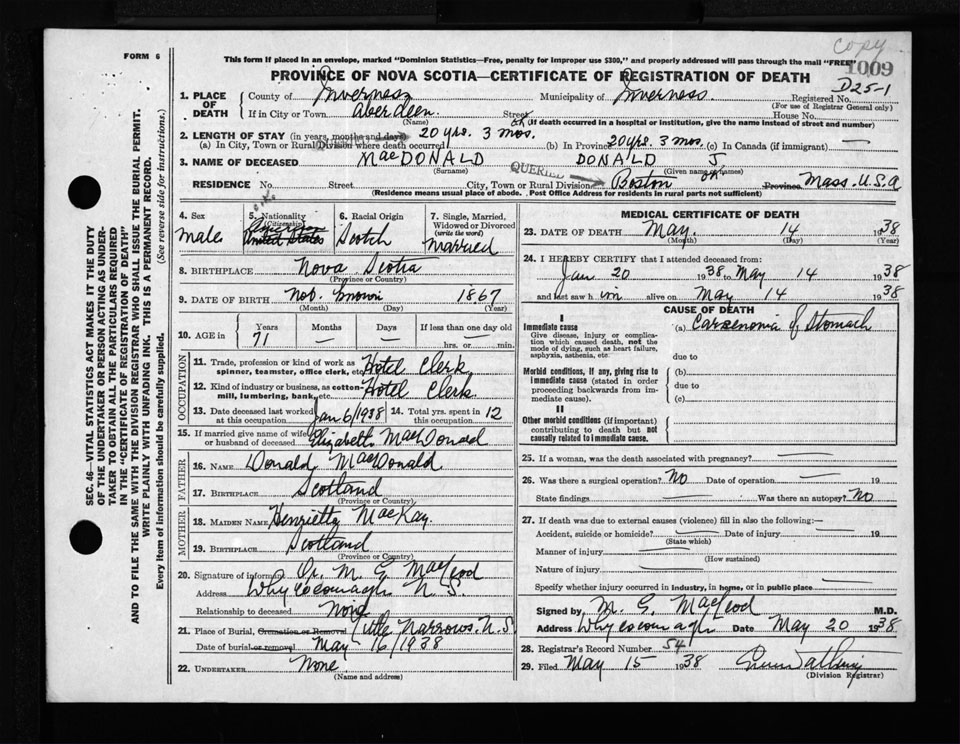 copy
1009
FORM 6
This form if placed in an envelope, marked "Dominion Statistics—Free, penalty for improper use $300," and properly addressed will pass through the mail "FREE"
PROVINCE OF NOVA SCOTIA—CERTIFICATE OF REGISTRATION OF DEATH
D25-1
1. PLACE OF DEATH
County of Inverness Municipality of Inverness. Registered No.
(For use of Registrar General only)
If in City or Town Aberdeen. Street House No.
(Name) (If death occurred in a hospital or institution, give the name instead of street and number)
2. LENGTH OF STAY (in years, months and days) 20 yrs. 3 mos.
(a) In City, Town or Rural Division where death occurred (b) In Province 20 yrs. 3 mos. (c) In Canada (if immigrant) —
3. NAME OF DECEASED MacDONALD DONALD J
(Surname) (Given name or names)
QUERIED
RESIDENCE No. Street City, Town or Rural Division Boston Province Mass. U.S.A
(Residence means usual place of abode. Post Office Address for residents in rural parts not sufficient)
4. Sex
Male
5. Nationality
(Citizenship)
United States
6. Racial Origin
Scotch
7. Single, Married, Widowed or Divorced
(write the word)
Married
8. BIRTHPLACE Nova Scotia
(Province or Country)
9. DATE OF BIRTH Not known 1867
(Month) (Day) (Year)
10. AGE in
Years Months Days If less than one day old
71 — — hrs. or min.
OCCUPATION
11. Trade, profession or kind of work as spinner, teamster, office clerk, etc. Hotel Clerk
12. Kind of industry or business, as cotton-mill, lumbering, bank, etc. Hotel Clerk
13. Date deceased last worked at this occupation Jan 6/1938 14. Total yrs. spent in 12
15. If married give name of wife or husband of deceased Elizabeth MacDonald
FATHER
16. NAME Donald MacDonald
17. BIRTHPLACE Scotland
(Province or Country)
MOTHER
18. MAIDEN NAME Henrietta MacKay.
19. BIRTHPLACE Scotland
(Province or Country)
20. Signature of informant Dr. M. G. MacLeod
Address Whycocomagh N.S.
Relationship to deceased None
21. Place of Burial, Cremation or Removal Little Narrows. N.S.
Date of burial or removal May 16/1938
22. UNDERTAKER None
(Name and address)
MEDICAL CERTIFICATE OF DEATH
23. DATE OF DEATH May. 14 1938
(Month) (Day) (Year)
24. I HEREBY CERTIFY that I attended deceased from:
Jan 20 1938 to May 14 1938
and last saw him alive on May 14 1938
CAUSE OF DEATH
I
Immediate cause (a) Carsenomia of Stomach
Give disease, injury or complication which caused death, not the mode of dying, such as heart failure, asphyxia, asthenia, etc.
due to
Morbid conditions, if any, giving rise to immediate cause (stated in order proceeding backwards from immediate cause).
(b)
due to
(c)
II
Other morbid conditions (if important) contributing to death but not causally related to immediate cause.
25. If a woman, was the death associated with pregnancy? —
26. Was there a surgical operation? No Date of operation — 19
State findings — Was there an autopsy? No
27. If death was due to external causes (violence) fill in also the following:—
Accident, suicide or homicide? — Date of injury — 19
(State which)
Manner of injury —
(How sustained)
Nature of injury —
Specify whether injury occurred in industry, in home, or in public place
Signed by M. G. MacLeod M.D.
Address Whycocomagh Date May 20 1938
28. Registrar's Record Number 54
29. Filed May 15 1938
(Division Registrar)
SEC. 46—VITAL STATISTICS ACT MAKES IT THE DUTY
OF THE UNDERTAKER OR PERSON ACTING AS UNDER-
TAKER TO OBTAIN ALL THE PARTICULARS REQUIRED
IN THE "CERTIFICATE OF REGISTRATION OF DEATH"
AND TO FILE THE SAME WITH THE DIVISION REGISTRAR WHO SHALL ISSUE THE BURIAL PERMIT.
WRITE PLAINLY WITH UNFADING INK. THIS IS A PERMANENT RECORD.
Every item of information should be carefully supplied. (See reverse side for instructions.)